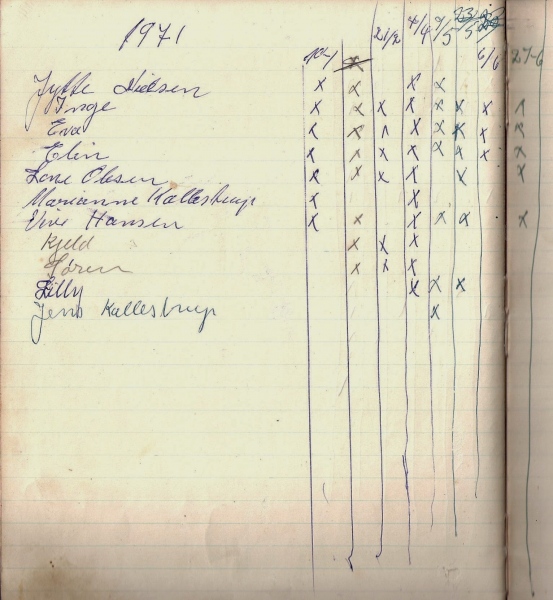 1971
10-1 21/2 4/4 7/5 6/6 27-6
Jytte Nielsen x x x x
Inge x x x x x x x x
Eva x x x x x x x x
Elin x x x x x x x
Lone Olesen x x x x x x
Marianne Kallestrup x x
Vivi Hansen x x x x x x
Kjeld x x x
Søren x x x
Lilly x x x
Jens Kallestrup x